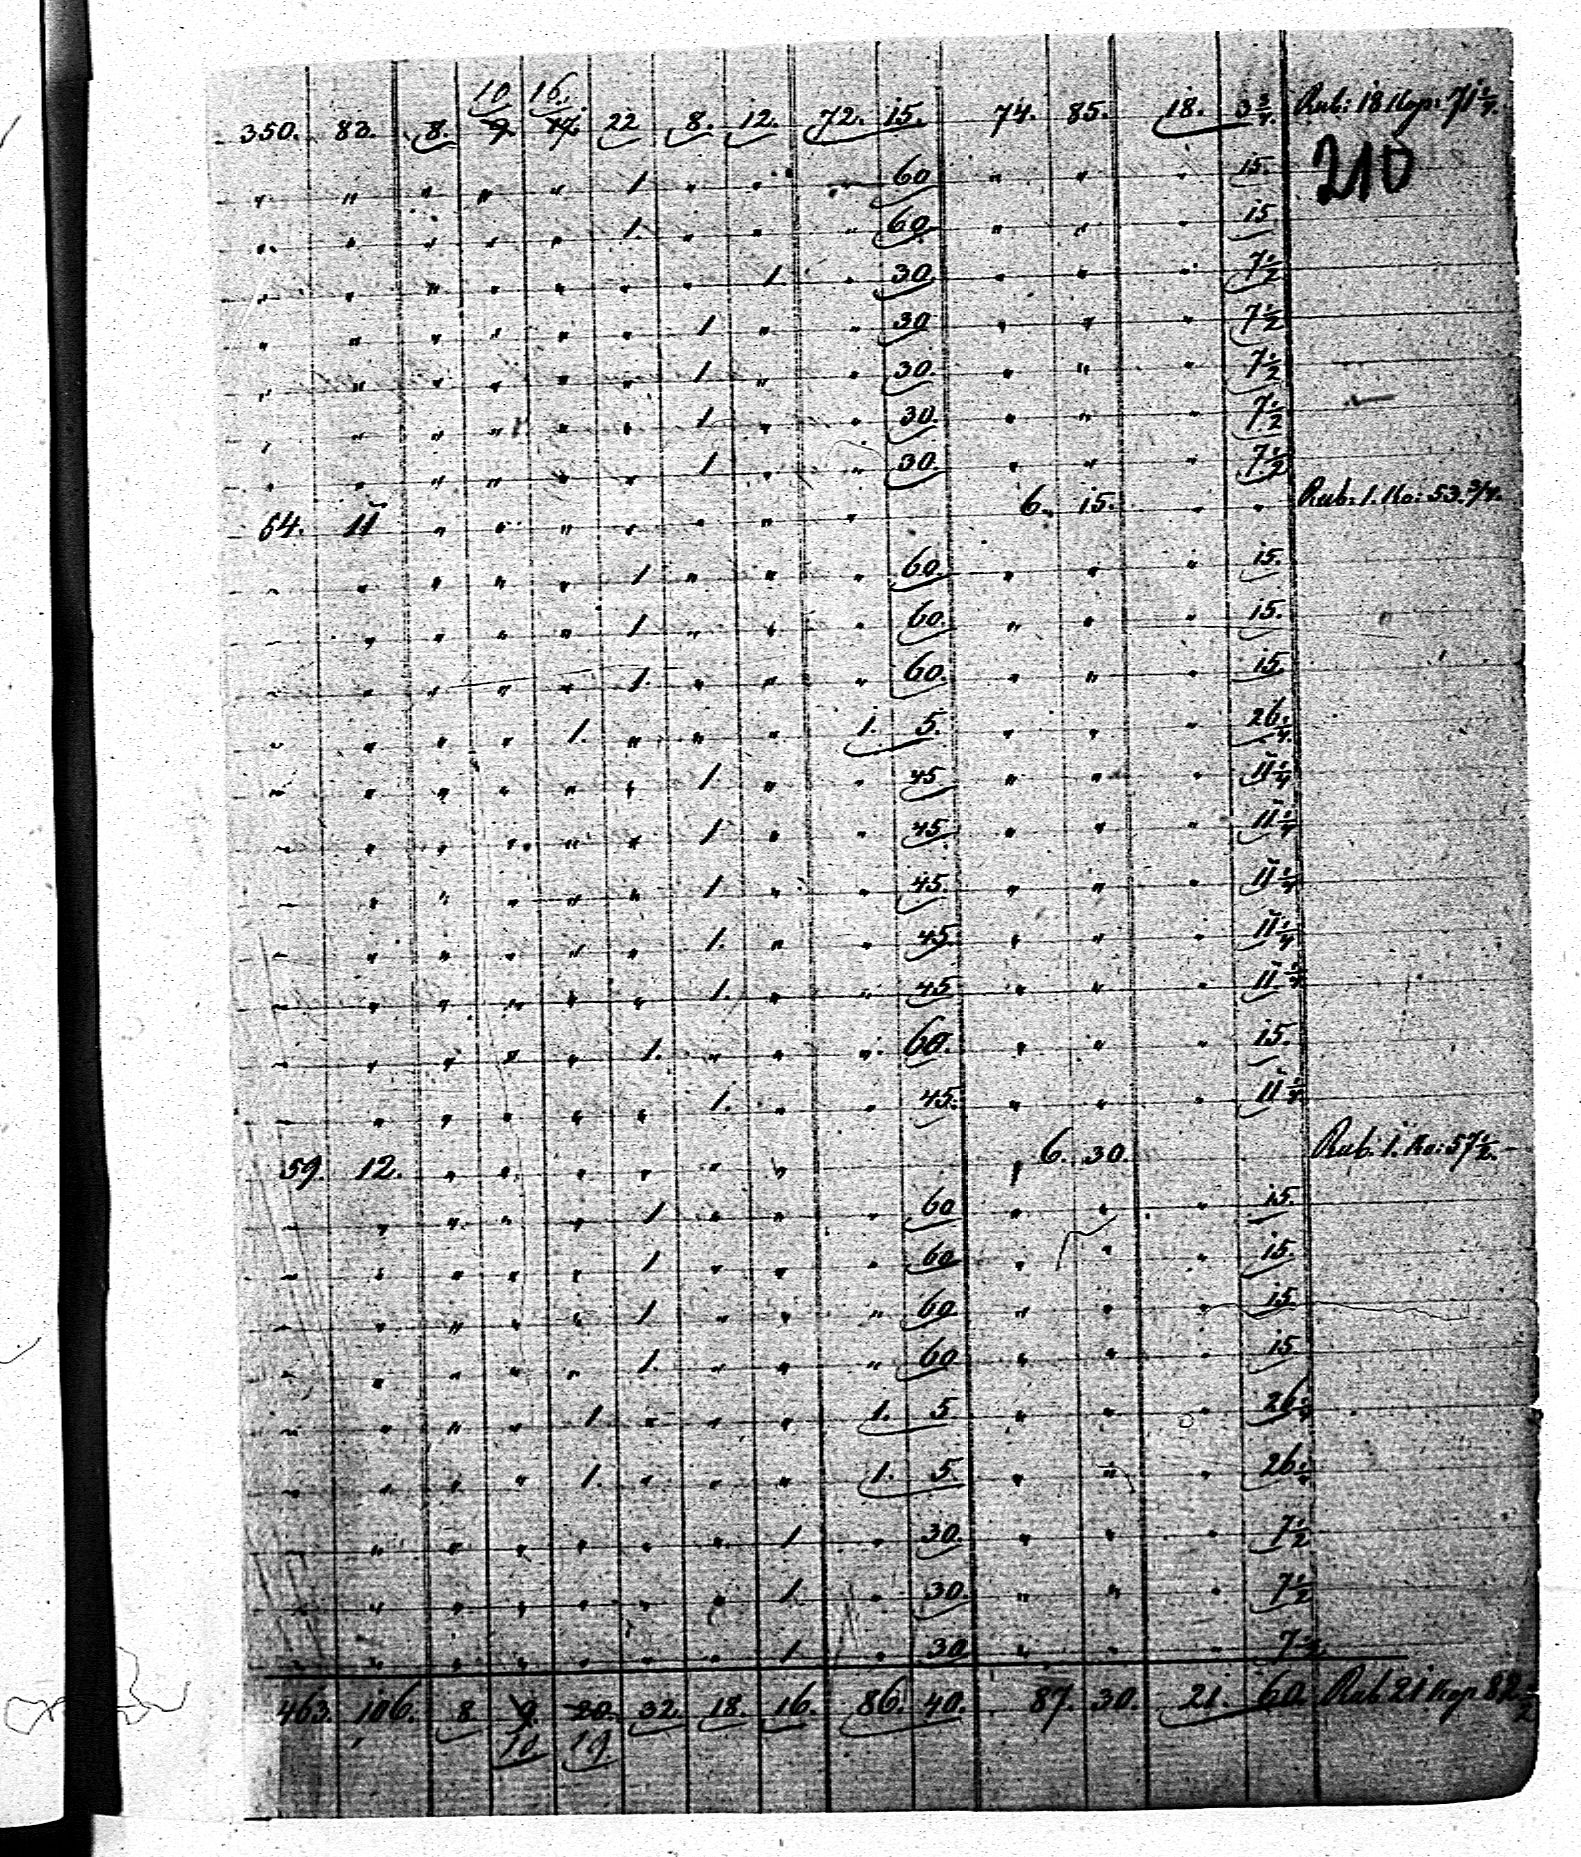 10 16.
350. 83. 8. 9. 17. 22 8. 12. 72. 15. 74. 85. 18. 3 3/4. Rub: 18 Kop: 71 1/4.
210
" " " " " 1. " " " 60 " " " 15.
" " " " " 1. " " " 60. " " " 15
" " " " " " " 1. " 30. " " " 7 1/2
" " " " " " 1 " " 30 " " " 7 1/2
" " " " " " 1 " " 30. " " " 7 1/2
" " " " " " 1 " " 30. " " " 7 1/2
" " " " " " 1 " " 30. " " " 7 1/2
54. 11 " " " " " " " 6. 15. " " Rub. 1. Ko: 53. 3/4.
" " " " " 1 " " " 60. " " " 15.
" " " " " 1 " " " 60. " " " 15.
" " " " " 1. " " " 60. " " " 15.
" " " " 1. " " " 1. 5. " " " 26 1/4
" " " " " " 1. " " 45 " " " 11 1/4
" " " " " " 1 " " 45. " " " 11 1/4
" " " " " " 1 " " 45. " " " 11 1/4
" " " " " " 1. " " 45. " " " 11 1/4
" " " " " " 1. " " 45 " " " 11 1/4
" " " " " 1. " " " 60. " " " 15.
" " " " " " 1. " " 45. " " " 11 1/4
59. 12. " " " " " " " 6. 30. Rub. 1. Ko: 57 1/2.
" " " " " 1 " " " 60 " " " 15.
" " " " " 1 " " " 60 " " " 15.
" " " " " 1 " " " 60 " " " 15
" " " " " 1. " " " 60 " " " 15
" " " " 1. " " " 1. 5. " " " 26 1/4
" " " " 1. " " " 1. 5. " " " 26 1/4
" " " " " " " 1 " 30. " " " 7 1/2
" " " " " " " 1 " 30. " " " 7 1/2
" " " " " " " 1 " 30 " " " 7 1/2
463. 106. 8. 9. 20. 32. 18. 16. 86. 40. 87. 30. 21. 60 Rub 21 Kop 82 1/2
10 19.